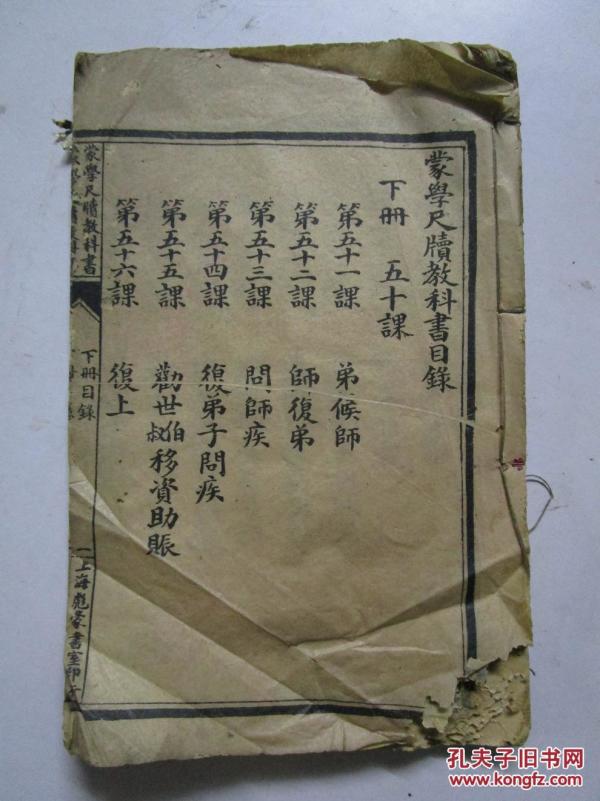 蒙學尺牘教科書目錄
下冊 五十課
第五十一課 弟候師
第五十二課 師復弟
第五十三課 問師疾
第五十四課 復弟子問疾
第五十五課 勸世伯叔移資助賬
第五十六課 復上
蒙學尺牘教科書
下冊目錄
上海彪蒙書室印
孔夫子旧书网
www.kongfz.com